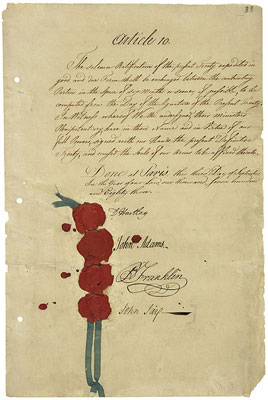 38
Article 10.
The solemn Ratifications of the present Treaty expedited in
good and due Form shall be exchanged between the contracting
Parties in the Space of Six Months or sooner if possible, to be
computed from the Day of the Signature of the present Treaty.
In Witness whereof We the undersigned, their Ministers
Plenipotentiary have in their Name and in Virtue of our
Full Powers, signed with our Hands the present Definitive
Treaty, and caused the Seals of our Arms to be affixed thereto.
Done at Paris this third Day of September
In the Year of our Lord, one thousand, seven hundred
and Eighty three.
D Hartley
John Adams.
B Franklin
John Jay